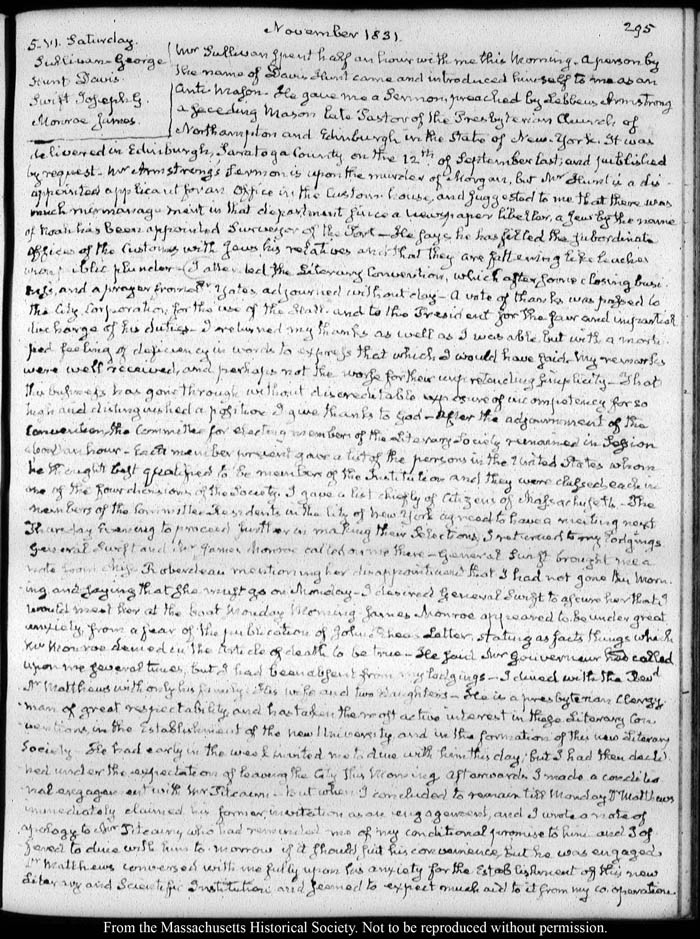 November 1831.
295
5. VI. Saturday.
Sullivan-George
Hunt Davis.
Swift Joseph G.
Monroe James.
Mr Sullivan spent half an hour with me this Morning. A person by
the name of Davis Hunt came and introduced himself to me as an
Anti Mason. He gave me a Sermon, preached by Lebbeus Armstrong
a seceding Mason late Pastor of the Presbyterian Church, of
Northampton and Edinburgh in the State of New-York. It was
delivered in Edinburgh, Saratoga County on the 12th of September last, and published
by request. Mr Armstrong's Sermon is upon the murder of Morgan, but Mr Hunt is a dis-
appointed applicant for an Office in the Custom house, and suggested to me that there was
much mismanagement in that department since a newspaper libeller, a Jew by the name
of Noah has been appointed Surveyor of the Port. He says he has filled the subordinate
Offices of the Customs with Jews his relatives and that they are fattening like leaches
upon public plunder. I attended the Literary Convention, which after some closing busi-
ness, and a prayer from Mr Yates adjourned without day. A vote of thanks was passed to
the City Corporation, for the use of the Hall. and to the President for the fair and impartial
discharge of his duties. I returned my thanks as well as I was able, but with a morti-
fied feeling of deficiency in words to express that which I would have said. My remarks
were well received, and perhaps not the worse for their unpretending simplicity. That
this business has gone through without discreditable exposure of incompetency for so
high and distinguished a position I give thanks to God. After the adjournment of the
Convention, the Committee for electing members of the Literary Society remained in Session
about an hour. Each member present gave a list of the persons in the United States whom
he thought best qualified to be members of the Institution and they were classed each in
one of the four divisions of the Society. I gave a list chiefly of Citizens of Massachusetts. The
members of the Committee Residents in the City of New York agreed to have a meeting next
Thursday Evening to proceed further in making their selections. I returned to my lodgings
General Swift and Mr James Monroe called on me there. General Swift brought me a
note from Miss Roberdeau mentioning her disappointment that I had not gone this Morn-
ing, and saying that she must go on Monday. I desired General Swift to assure her that I
would meet her at the boat Monday Morning. James Monroe appeared to be under great
anxiety, from a fear of the publication of John Rhea's Letter, stating as facts things which
Mr Monroe denied in the article of death to be true. He said Mr Gouverneur had called
upon me several times, but I had been absent from my lodgings. I dined with the Revd
Dr Matthews with only his family; His wife and two daughters. He is a presbyterian Clergy-
man of great respectability, and has taken the most active interest in these Literary Con-
ventions, in the Establishment of the new University, and in the formation of this new Literary
Society. He had early in the week invited me to dine with him this day; but I had then decli-
ned under the expectation of leaving the City this Morning. Afterwards I made a conditio-
nal engagement with Mr Fitcairn. but when I concluded to remain till Monday Dr Matthews
immediately claimed his former invitation as an engagement, and I wrote a note of
apology to Mr Fitcairn, who had reminded me of my conditional promise to him. and I of-
fered to dine with him to-morrow if it should suit his convenience, but he was engaged
Dr Matthews conversed with me fully upon his anxiety for the Establishment of this new
Literary and Scientific Institution; and seemed to expect much aid to it from my co-operation
From the Massachusetts Historical Society. Not to be reproduced without permission.